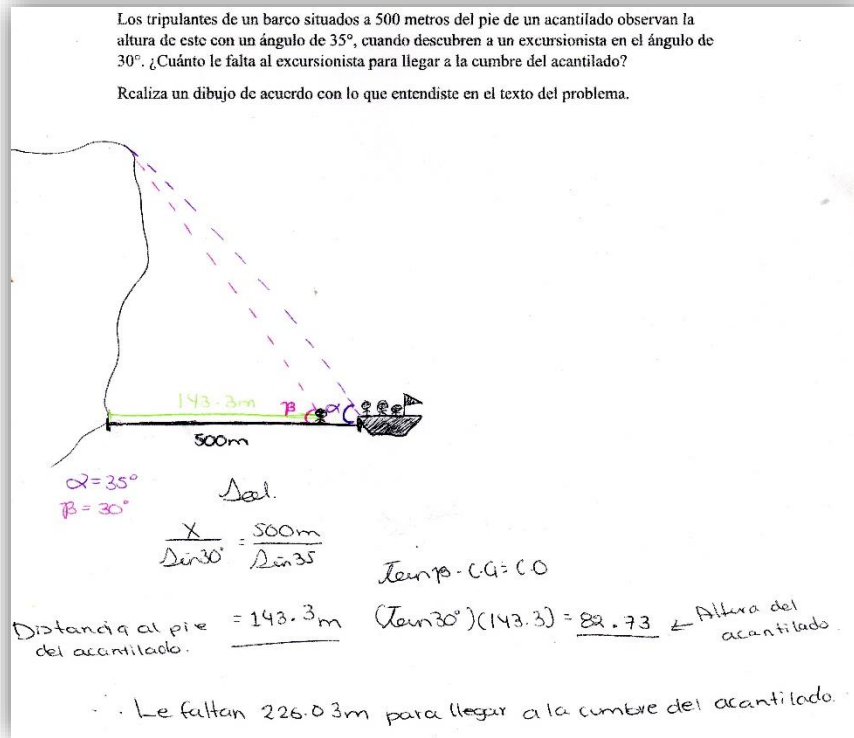 Los tripulantes de un barco situados a 500 metros del pie de un acantilado observan la
altura de este con un ángulo de 35°, cuando descubren a un excursionista en el ángulo de
30°. ¿Cuánto le falta al excursionista para llegar a la cumbre del acantilado?
Realiza un dibujo de acuerdo con lo que entendiste en el texto del problema.
143.3m β α
500m
α=35°
β=30°
Sol.
X/Sin30° = 500m/Sin35
Tanβ·CA=CO
Distancia al pie del acantilado. = 143.3m
(Tan30°)(143.3) = 82.73 ← Altura del acantilado.
∴ Le faltan 226.03m para llegar a la cumbre del acantilado.